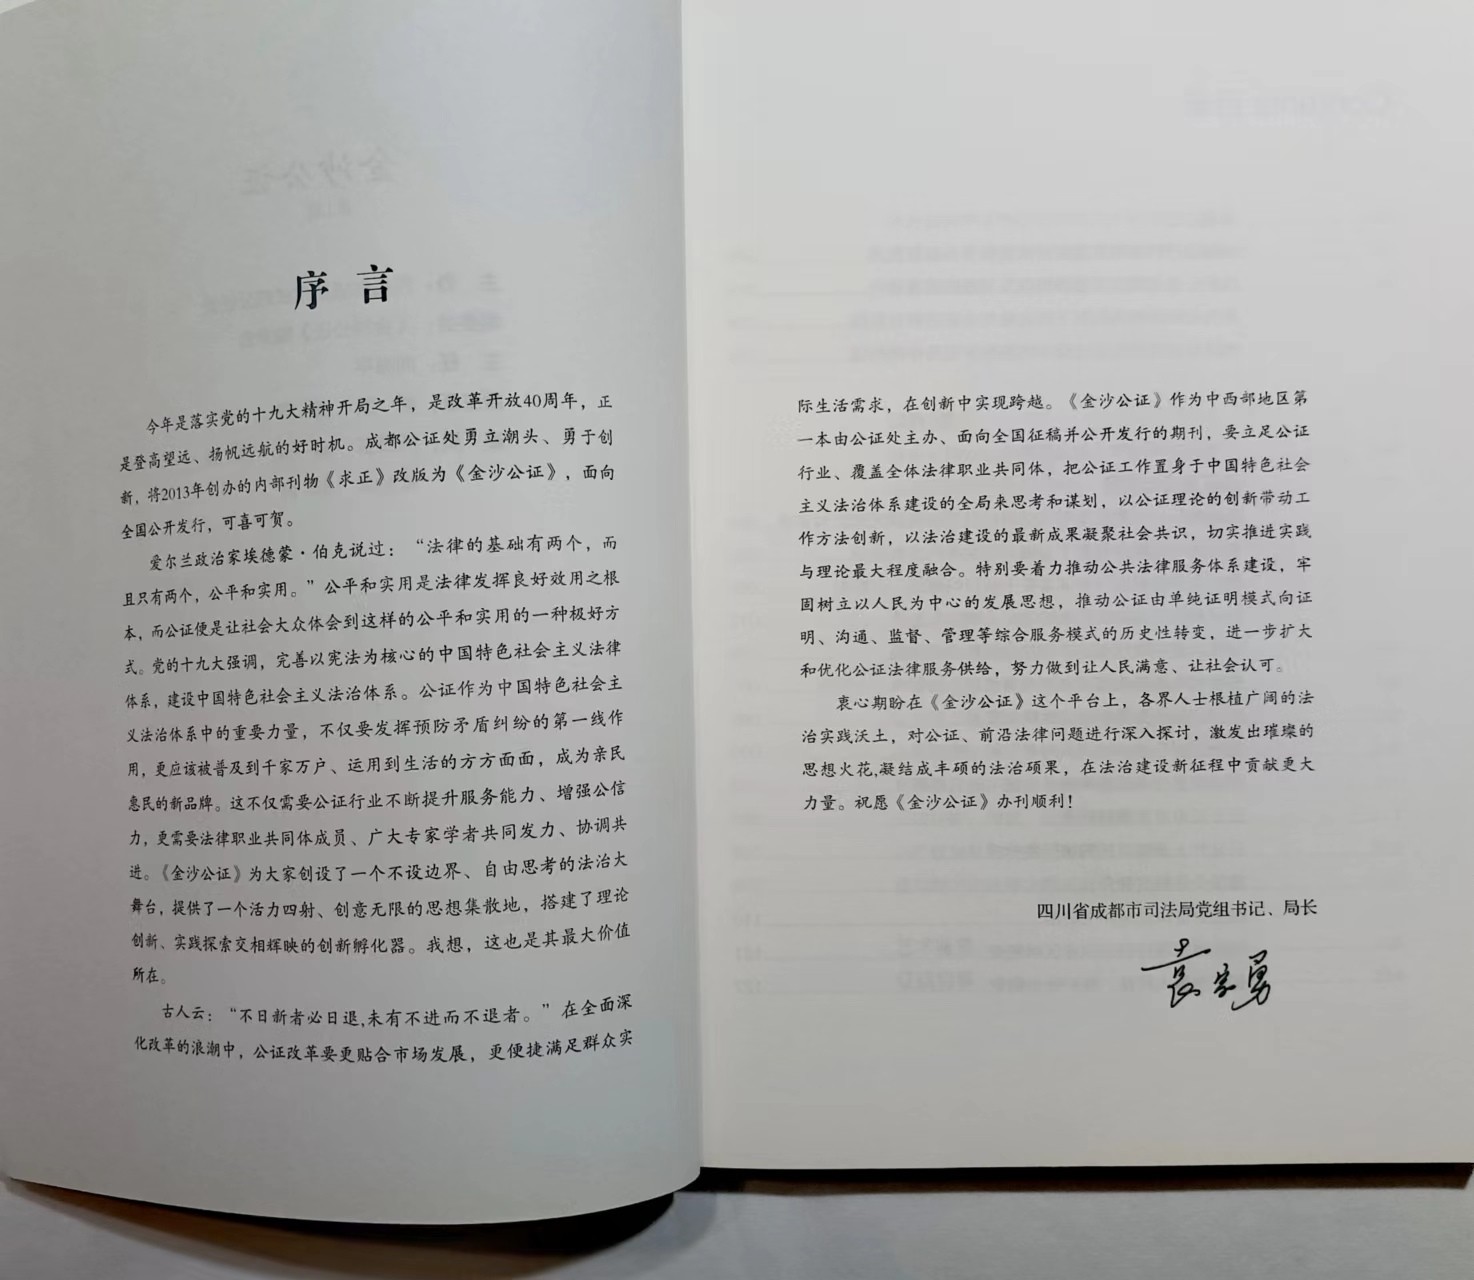 序言
今年是落实党的十九大精神开局之年，是改革开放40周年，正
是登高望远、扬帆远航的好时机。成都公证处勇立潮头、勇于创
新，将2013年创办的内部刊物《求正》改版为《金沙公证》，面向
全国公开发行，可喜可贺。
爱尔兰政治家埃德蒙·伯克说过：“法律的基础有两个，而
且只有两个，公平和实用。”公平和实用是法律发挥良好效用之根
本，而公证便是让社会大众体会到这样的公平和实用的一种极好方
式。党的十九大强调，完善以宪法为核心的中国特色社会主义法律
体系，建设中国特色社会主义法治体系。公证作为中国特色社会主
义法治体系中的重要力量，不仅要发挥预防矛盾纠纷的第一线作
用，更应该被普及到千家万户、运用到生活的方方面面，成为亲民
惠民的新品牌。这不仅需要公证行业不断提升服务能力、增强公信
力，更需要法律职业共同体成员、广大专家学者共同发力、协调共
进。《金沙公证》为大家创设了一个不设边界、自由思考的法治大
舞台，提供了一个活力四射、创意无限的思想集散地，搭建了理论
创新、实践探索交相辉映的创新孵化器。我想，这也是其最大价值
所在。
古人云：“不日新者必日退,未有不进而不退者。”在全面深
化改革的浪潮中，公证改革要更贴合市场发展，更便捷满足群众实
际生活需求，在创新中实现跨越。《金沙公证》作为中西部地区第
一本由公证处主办、面向全国征稿并公开发行的期刊，要立足公证
行业、覆盖全体法律职业共同体，把公证工作置身于中国特色社会
主义法治体系建设的全局来思考和谋划，以公证理论的创新带动工
作方法创新，以法治建设的最新成果凝聚社会共识，切实推进实践
与理论最大程度融合。特别要着力推动公共法律服务体系建设，牢
固树立以人民为中心的发展思想，推动公证由单纯证明模式向证
明、沟通、监督、管理等综合服务模式的历史性转变，进一步扩大
和优化公证法律服务供给，努力做到让人民满意、让社会认可。
衷心期盼在《金沙公证》这个平台上，各界人士根植广阔的法
治实践沃土，对公证、前沿法律问题进行深入探讨，激发出璀璨的
思想火花,凝结成丰硕的法治硕果，在法治建设新征程中贡献更大
力量。祝愿《金沙公证》办刊顺利！
四川省成都市司法局党组书记、局长
袁家勇